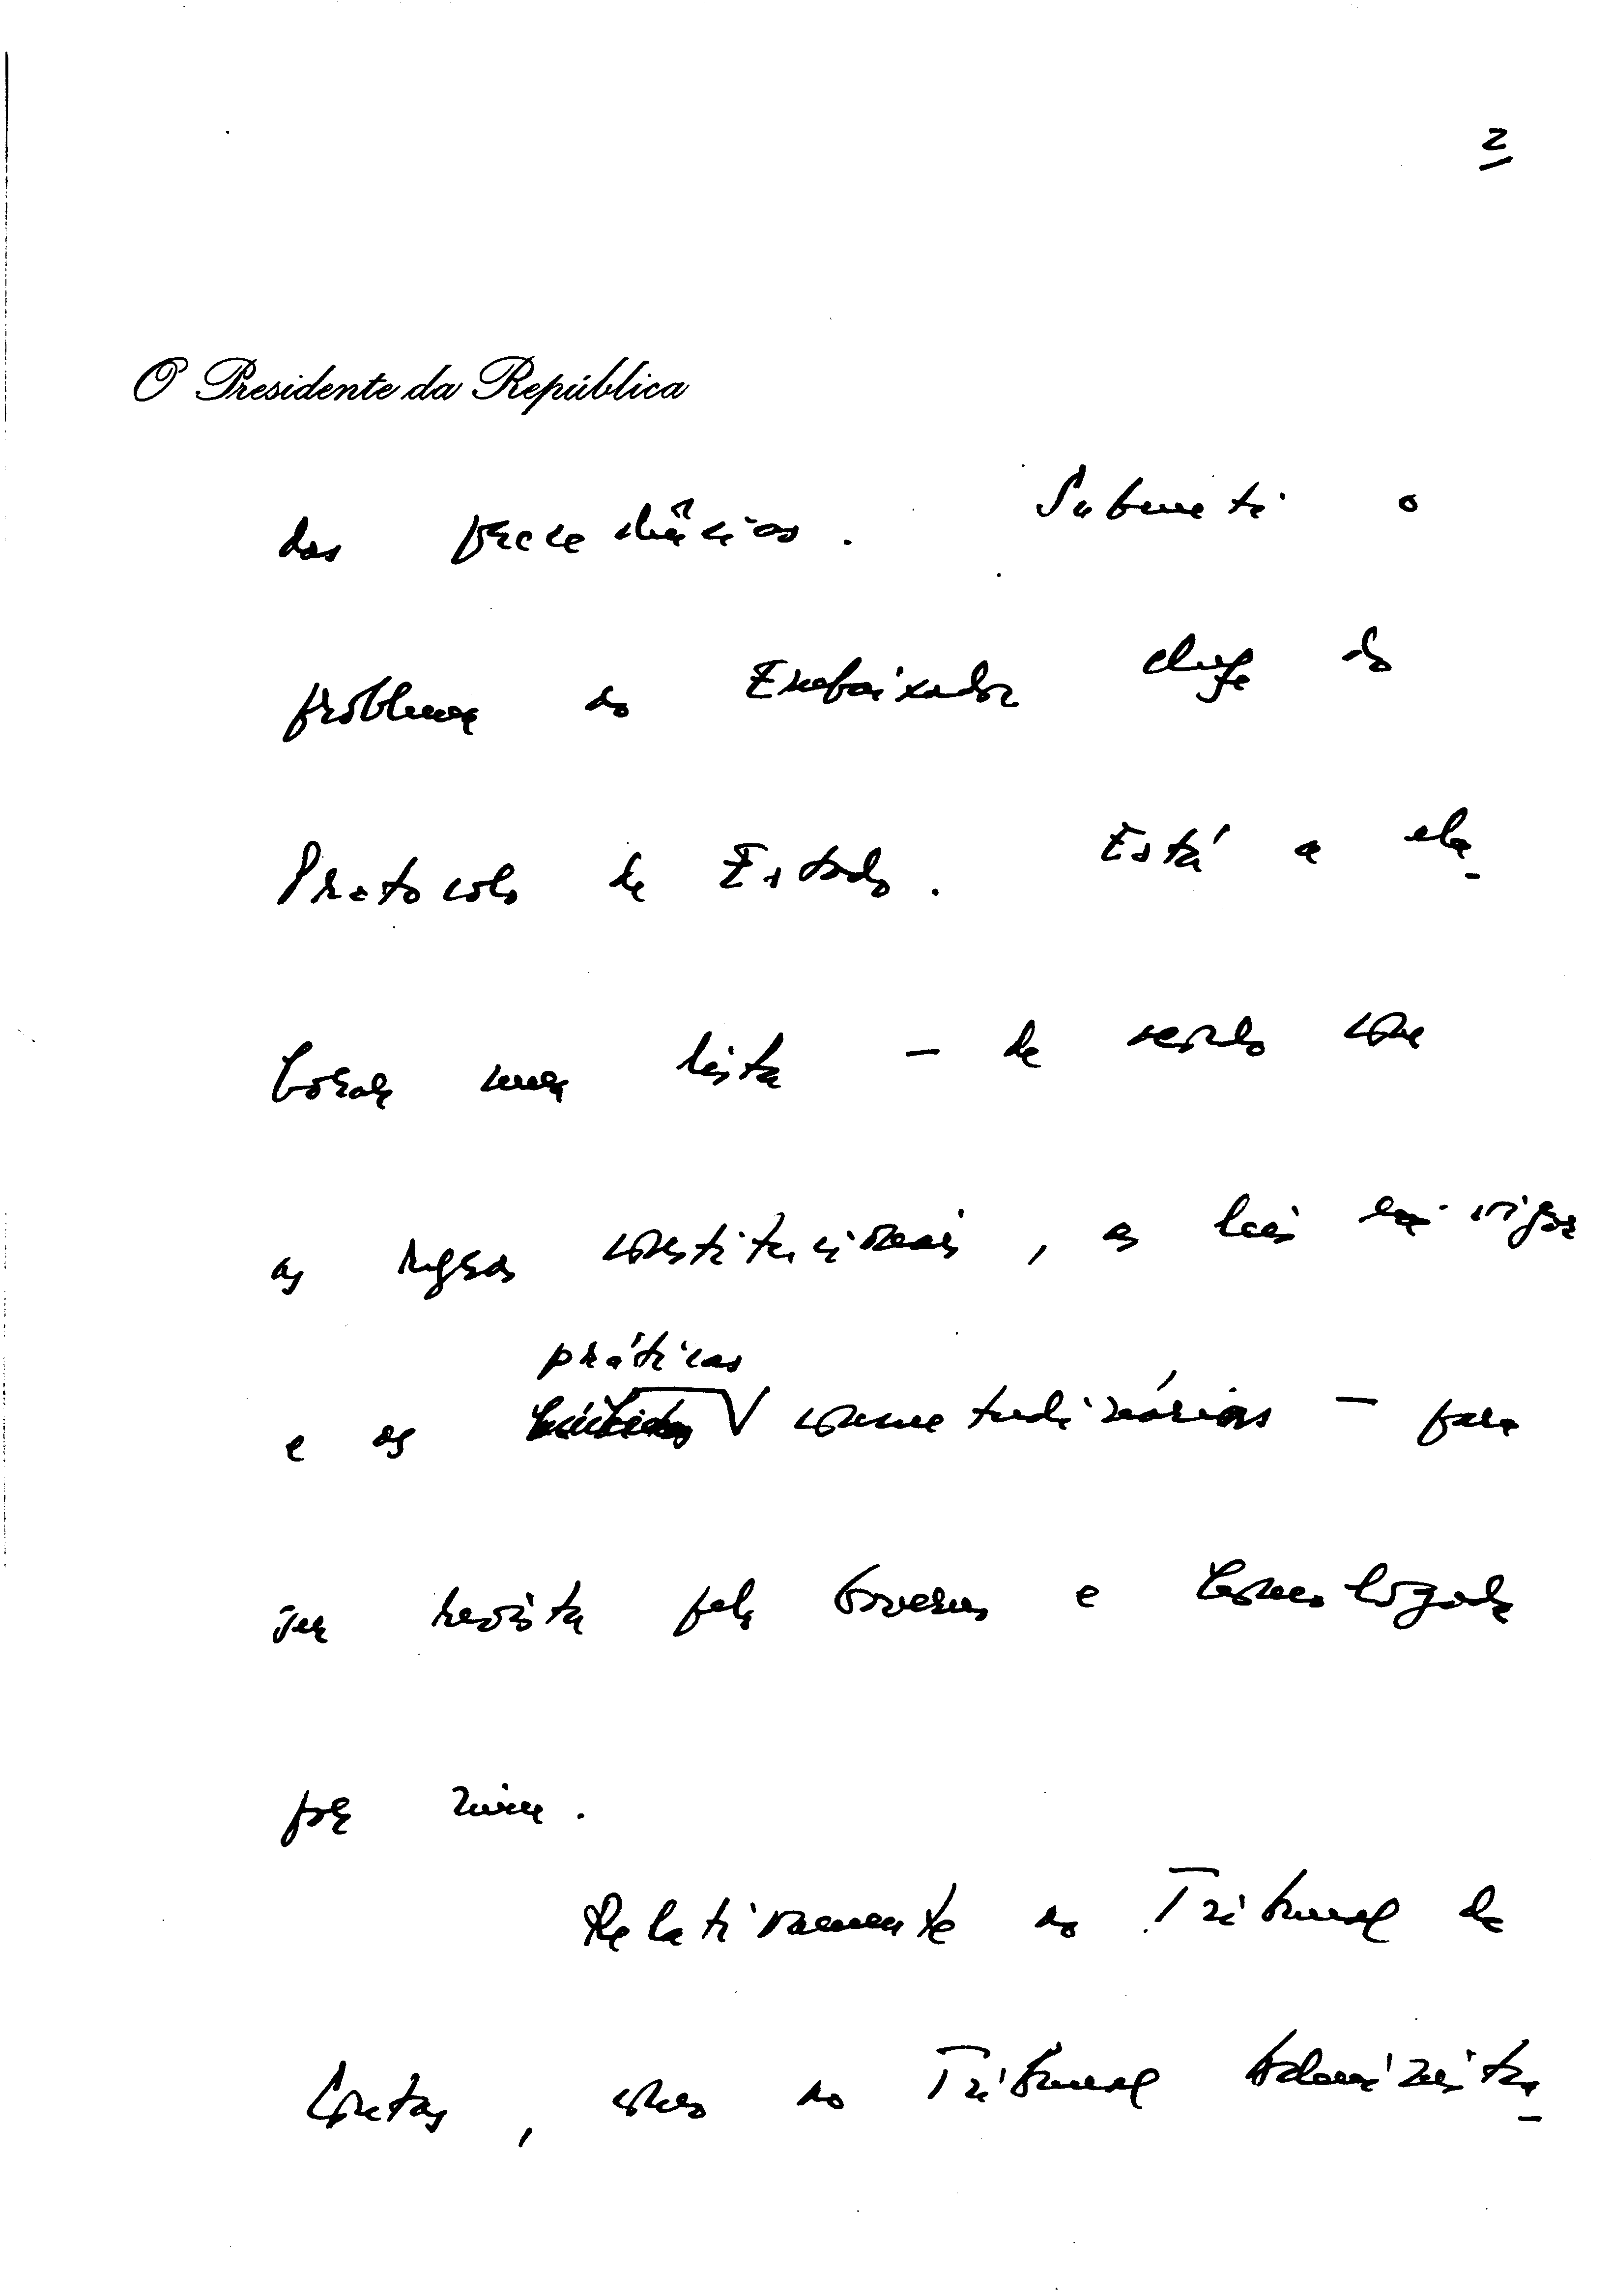 2
O Presidente da República
das precedências. Submeti o
problema ao Embaixador chefe do
Protocolo de Estado. Está a ela-
borar uma lista – de acordo com
as regras constitucionais, as leis em vigor
práticas
e as consuetudinárias – para
ser revista pelo Governo e homologada
por mim.
Relativamente ao Tribunal de
Contas, como ao Tribunal Administra-